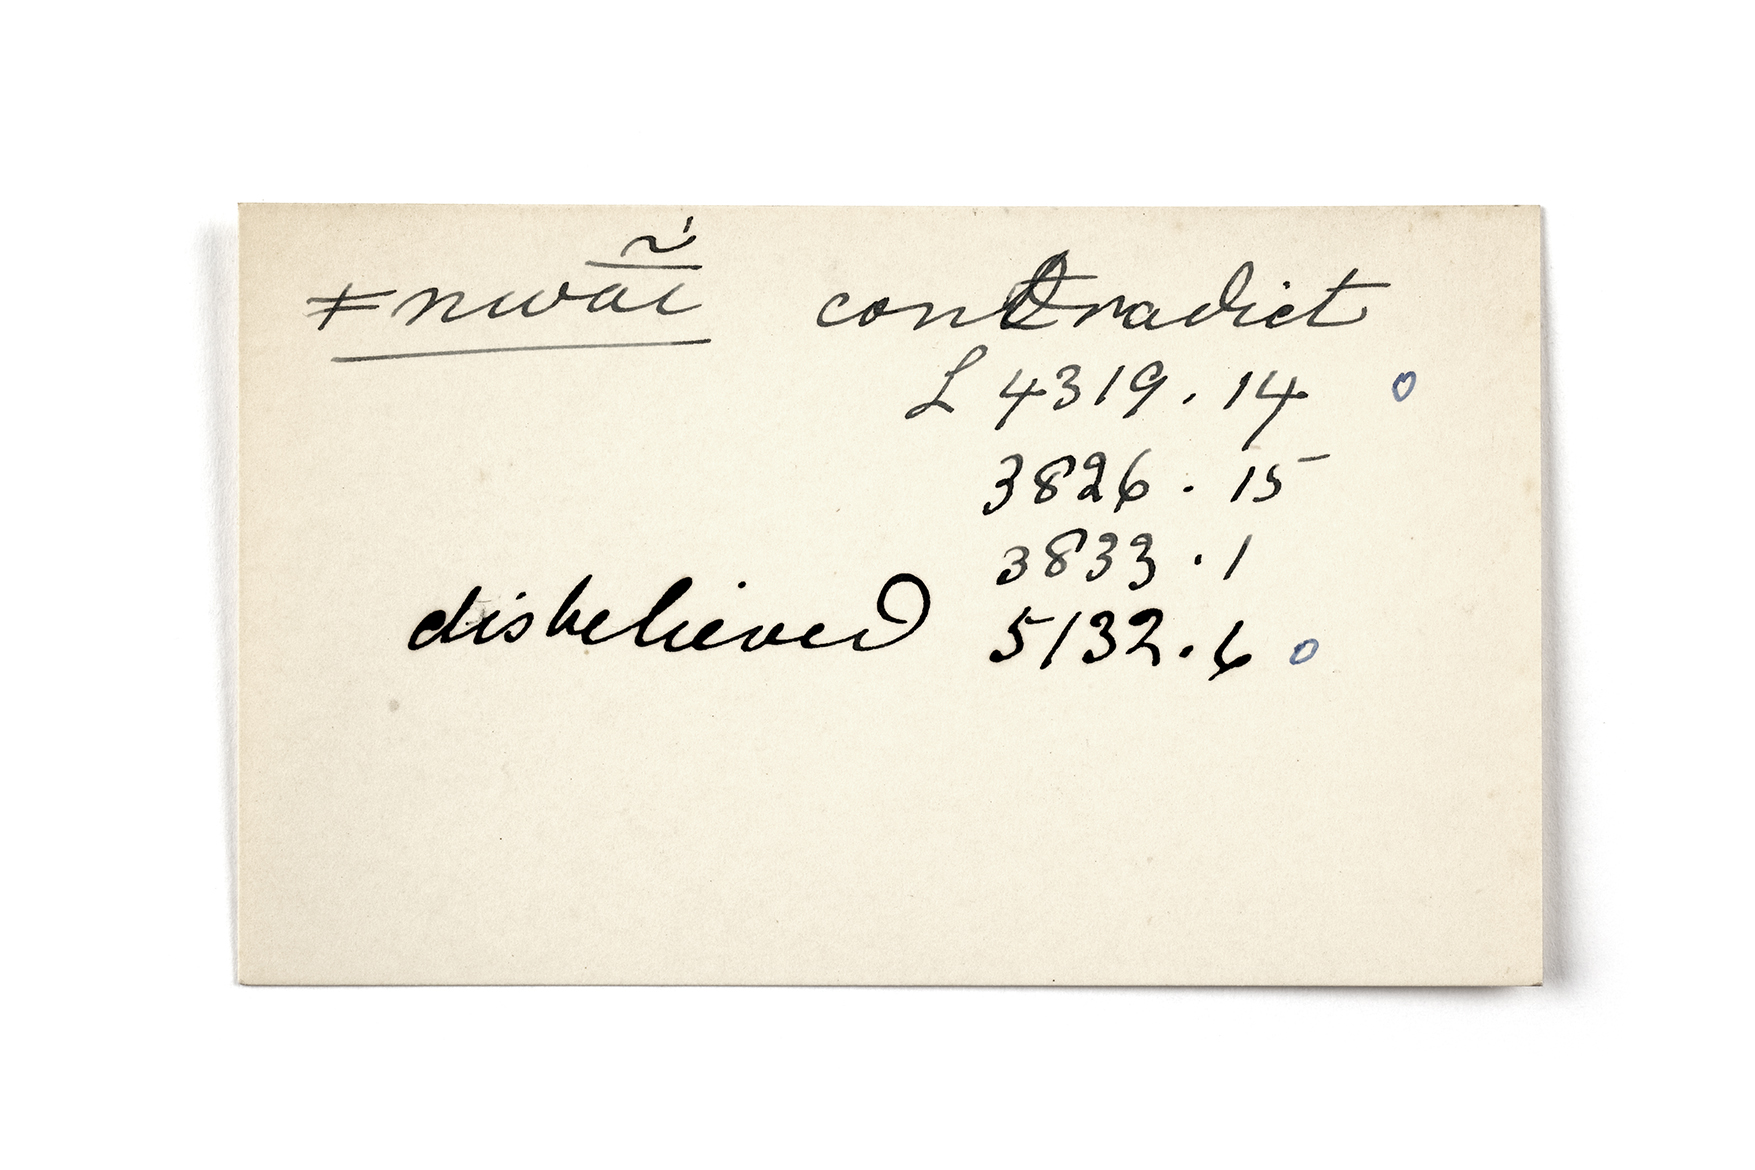 ǂnwā̃í contradict
L 4319.14 o
3826.15
3833.1
disbelieved 5132.6 o